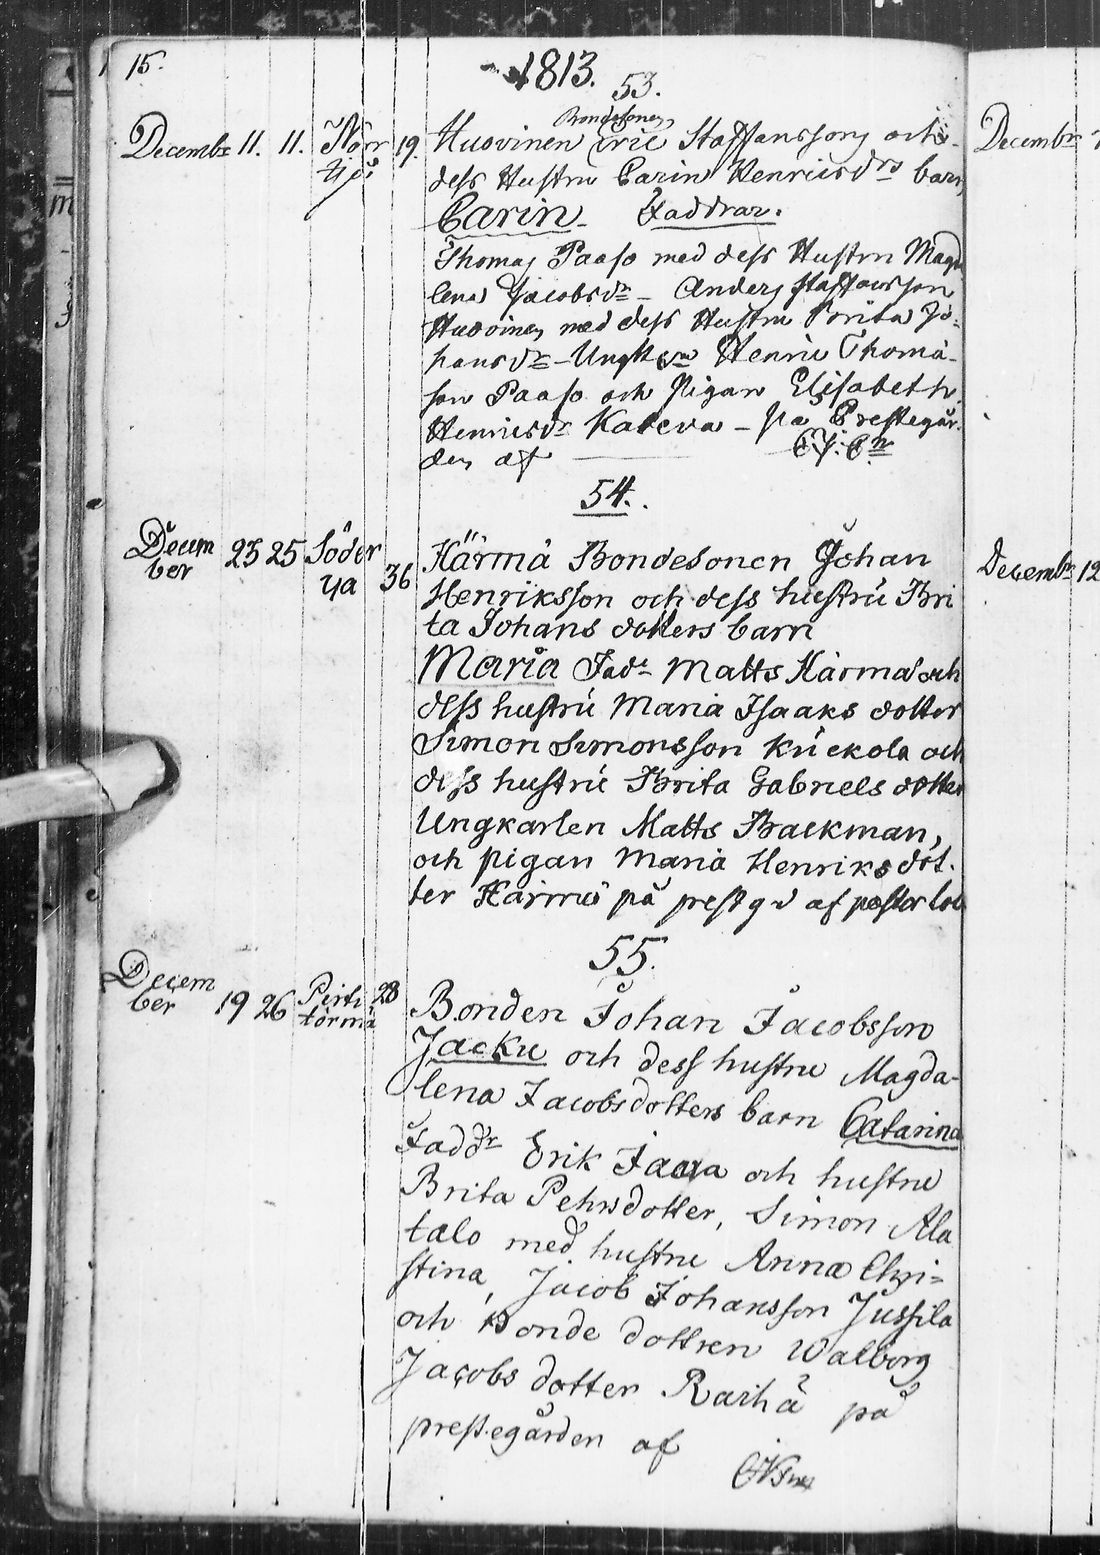 15.
1813.
53.
Decembr 11. 11. Norr 19. Huovinen Bondesonen Eric Staffansson och
dess Hustru Carin Henricsdr barn
Carin. Faddrar.
Thomas Paaso med dess Hustru Magda
lena Jacobsdr – Anders Staffansson
Huovinen med dess Hustru Brita Jo-
hansdr – Ungk Henric Thomä-
son Paaso och Pigan Elisabeth
Henricsdr Kareva – på Prestegår-
den af
54.
Decem
ber 23 25 Söder
ya 36 Härmä Bondesonen Johan
Henriksson och dess hustru Bri
ta Johans dotters barn
Maria Fadr Matts Härmä och
dess hustru Maria Isaaks dotter
Simon Simonsson Kuckola och
dess hustru Brita Gabriels dotter
Ungkarlen Matts Backman,
och pigan Maria Henriks dot-
ter Härmä på prestgd af pastor loc
55.
Decem
ber 19 26 Pirti
törmä 28 Bonden Johan Jacobsson
Jacku och dess hustru Magda-
lena Jacobsdotters barn Catarina
Faddr Erik Jaara och hustru
Brita Pehrsdotter, Simon Ala
talo med hustru Anna Chri-
stina, Jacob Johansson Jussila
och Bonde dottren Walborg
Jacobs dotter Raihä på
prestegården af
Decembr
Decembr 12